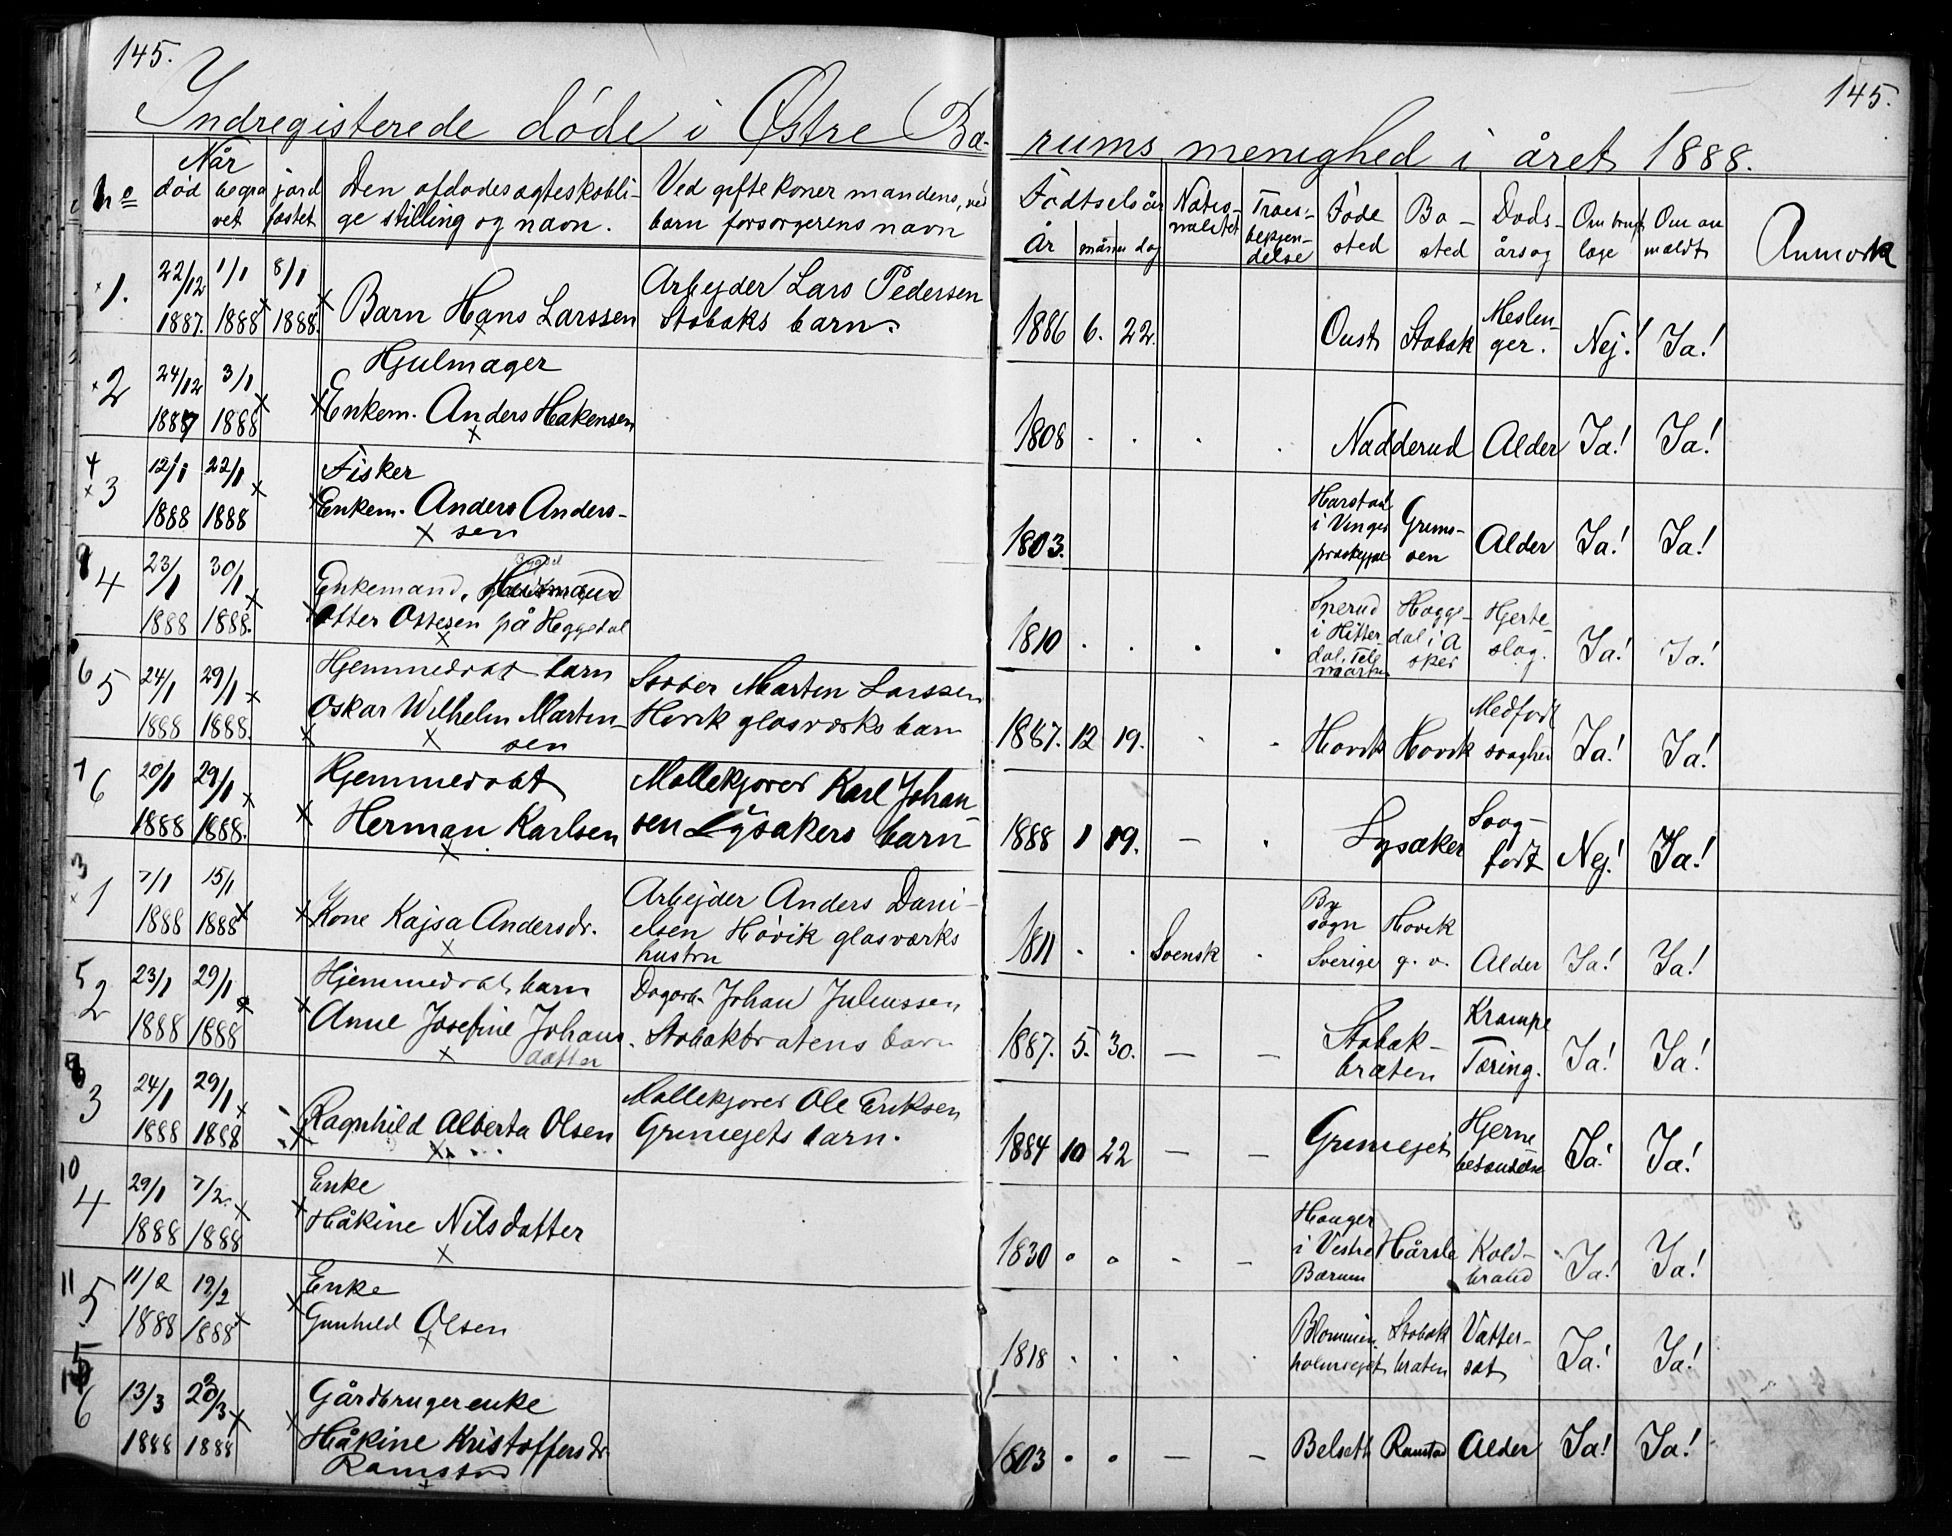 145.
145.
Indregisterede døde i Østre Bæ-
rums menighed i året 1888.
No
Når
død
begra
vet
jord
fæstet
Den afdødes ægteskabli-
ge stilling og navn.
Ved gifte koner mandens, ved
barn forsorgerens navn
Fødselsår
År
dag
Natio-
nalitet
Troes-
bekjen-
delse
Føde
sted
Bo-
sted
Døds-
årsag
læge
Om an
mældt
Anmærk
1.
22/12 1/1 8/1
1887. 1888 1888.
Barn Hans Larssen
Arbejder Lars Pedersen
Stabæks barn.
1886 6. 22.
Stabæk
Meslen-
ger.
Nej! Ja!
2
24/12 3/1
1887 1888
Hjulmager
Enkem. Anders Håkensen
1808
Nadderud Alder Ja! Ja!
4
3
12/1 22/1
1888 1888
Fisker
Enkem. Anders Anders-
sen
1803.
Harstad
i Vinger
Alder Ja! Ja!
4
23/1 30/1
1888 1888.
Enkemand, Husmand
Otter Ottesen på Heggedal
1810
i Hitter
dal, Tele
marken
Hegge-
dal i A
sker
Hjerte-
slag.
Ja! Ja!
6
5
24/1 29/1
1888 1888.
Hjemmedøbt barn
Oskar Wilhelm Marten-
sen
Støber Marten Larssen
Høvik glasværks barn
1887. 12 19.
Høvik Høvik
Medfødt
svaghed
Ja! Ja!
7
6
20/1 29/1
1888 1888.
Hjemmedøbt
Herman Karlsen
Møllekjører Karl Johan-
sen Lysakers barn
1888 1 19.
Lysaker
Svag-
født
Nej! Ja!
3
1
7/1 15/1
1888 1888
Kone Kajsa Andersdr.
Arbejder Anders Dani-
elsen Høvik glasværks
hustru
1811
Svensk
By
sogn
Sverige
Høvik
g. v.
Alder Ja! Ja!
5
2
23/1 29/1
1888 1888
Hjemmedøbt barn
Anne Josefine Johans-
datter
Dagarb. Johan Juliussen
Stabækbråtens barn
1887. 5. 30.
Stabæk-
bråten
Krampe
Tæring.
Ja! Ja!
3
24/1 29/1
1888 1888
Ragnhild Alberta Olsen
Møllekjører Ole Eriksen
Griniejets barn.
1884 10 22
Griniejet
Hjerne
betændelse
Ja! Ja!
10
4
29/1 7/2.
1888 1888
Enke
Håkine Nilsdatter
1830
Hauger
i Vestre
Bærum
Kold-
brand
Ja! Ja!
11
5
11/2 19/2
1888 1888
Enke
Gunhild Olsen
1818
Blommen-
holmiejet
Stabæk
bråten
Vatter-
sot
Ja! Ja!
6
13/3 20/3
1888 1888
Gårdbrugerenke
Håkine Kristoffersdr
Ramstad
1803
Belset Ramstad Alder Ja! Ja!